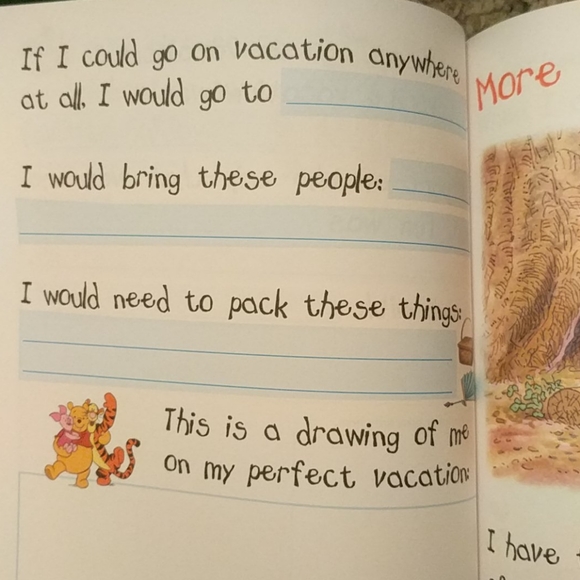 If I could go on vacation anywhere
at all, I would go to
I would bring these people:
I would need to pack these things:
This is a drawing of me
on my perfect vacation:
More
I have